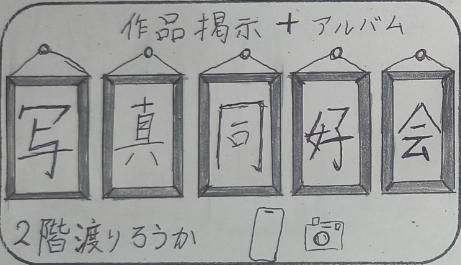 作品掲示+アルバム
写真同好会
2階渡りろうか